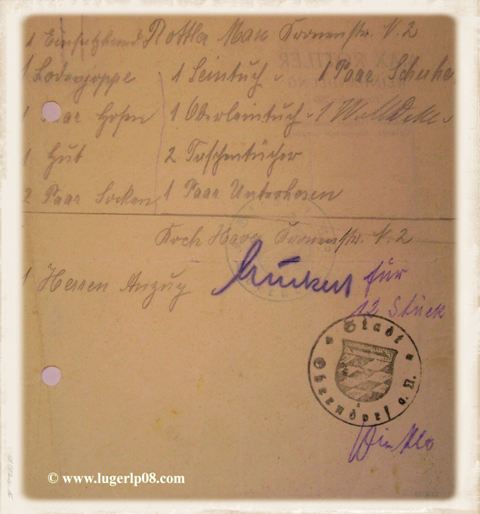 1 Einsatzhemd Rottler Max Kronenstr. N. 2
1 Lodenjoppe 1 Leintuch 1 Paar Schuhe
1 Paar Hosen 1 Oberleintuch 1 Wolldecke
1 Hut 2 Taschentücher
2 Paar Socken 1 Paar Unterhosen
Koch Kronenstr. N. 2
1 Herren Anzug für
12 Stück
Stadt
Oberndorf a. N.
© www.lugerlp08.com